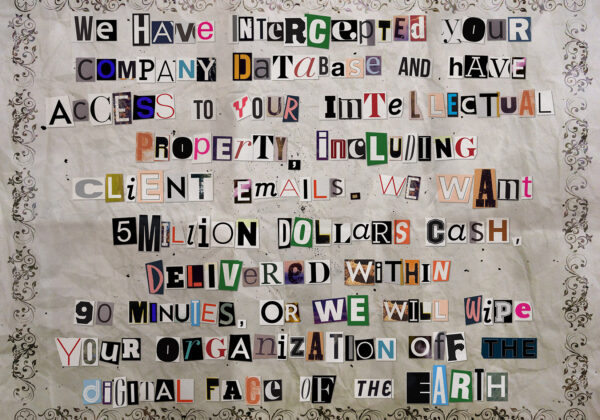 We Have Intercepted your
Company Database and have
Access to Your Intellectual
Property, including
Client Emails. We Want
5 Million Dollars Cash,
Delivered Within
90 Minutes, Or We Will Wipe
Your Organization off the
digital Face of the Earth